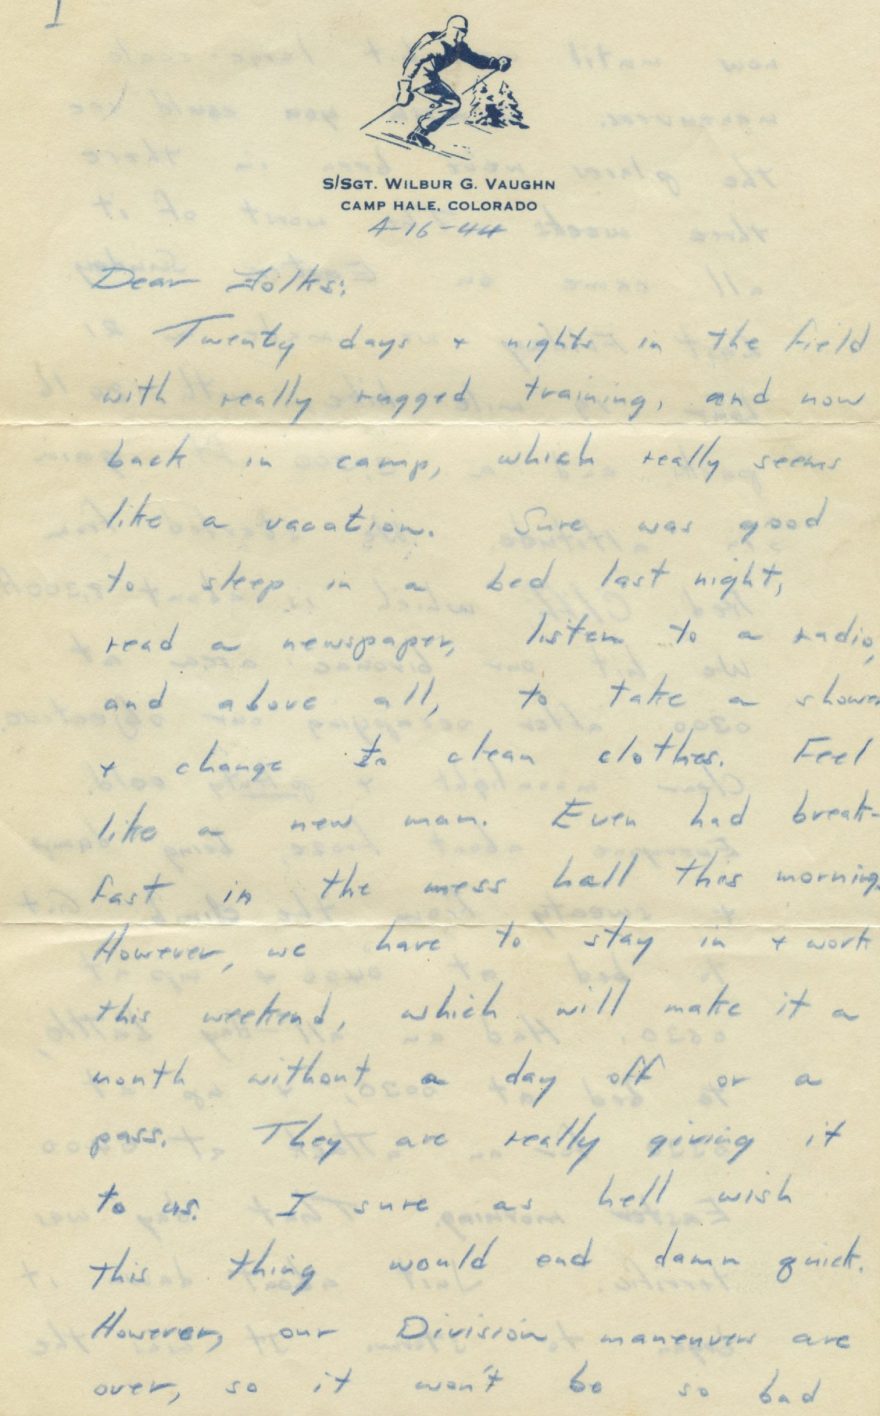 I
S/SGT. WILBUR G. VAUGHN
CAMP HALE, COLORADO
4-16-44
Dear Folks:
Twenty days + nights in the field
with really rugged training, and now
back in camp, which really seems
like a vacation. Sure was good
to sleep in a bed last night,
read a newspaper, listen to a radio,
and above all, to take a shower
+ change to clean clothes. Feel
like a new man. Even had break-
fast in the mess hall this morning.
However, we have to stay in + work
this weekend, which will make it a
month without a day off or a
pass. They are really giving it
to us. I sure as hell wish
this thing would end damn quick.
However, our Division maneuvers are
over, so it won't be so bad